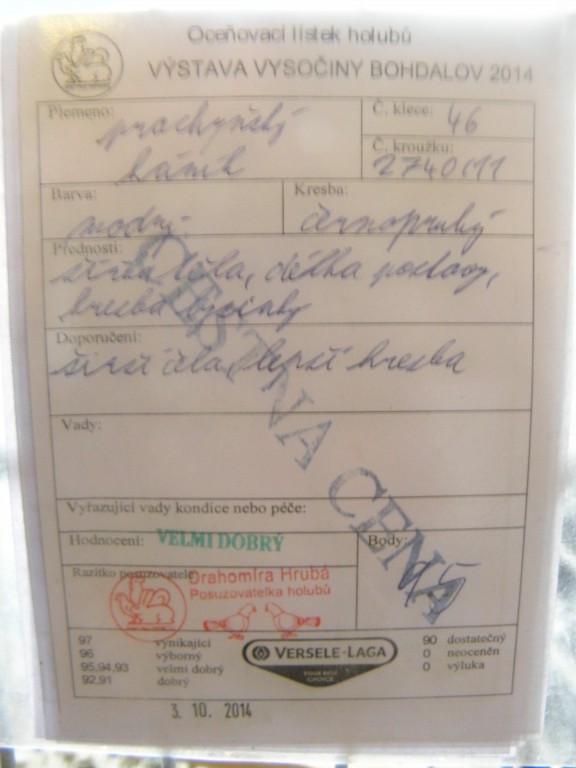 Oceňovací lístek holubů
VÝSTAVA VYSOČINY BOHDALOV 2014
Plemeno: prachyňský
káník
Č. klece: 46
Č. kroužku:
2740/11
Barva:
modrý
Kresba:
černopruhý
Přednosti:
šířka těla, délka postavy,
kresba
Doporučení:
širší čelo, lepší kresba
Vady:
Vyřazující vady kondice nebo péče:
Hodnocení: VELMI DOBRÝ
Body:
95
ČESTNÁ CENA
Razítko posuzovatele
Drahomíra Hrubá
Posuzovatelka holubů
97 vynikající
96 výborný
95,94,93 velmi dobrý
92,91 dobrý
VERSELE-LAGA
90 dostatečný
0 neoceněn
0 výluka
3. 10. 2014